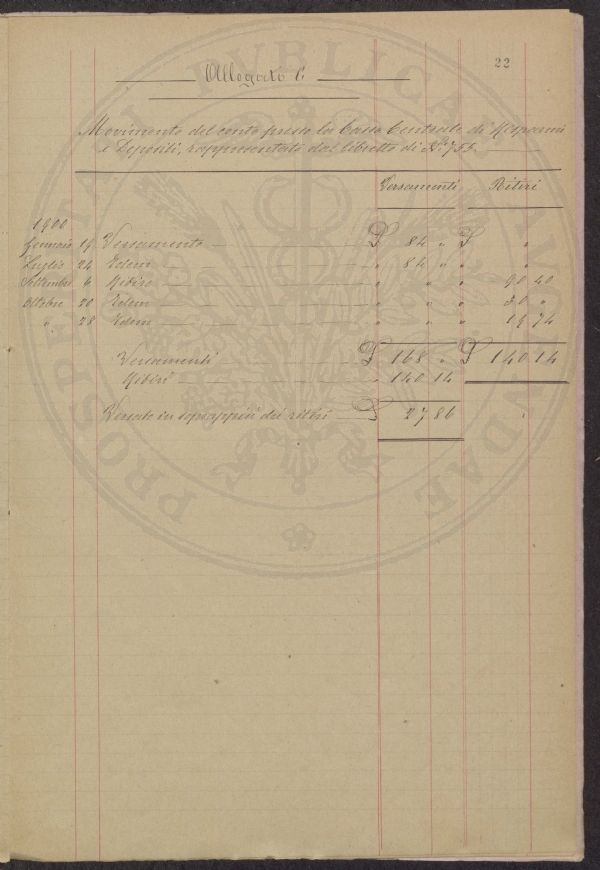 22
Allegato C
Movimento del conto presso la Cassa Centrale di Risparmi
e Depositi, rappresentato dal libretto di N° 755
Versamenti Ritiri
1900
Gennaio 19 Versamento £ 84 " £ "
Luglio 24 Idem " 84 " " "
Settembre 6 Ritiro " " " " 90 40
Ottobre 20 Idem " " " " 30 "
" 28 Idem " " " " 19 74
Versamenti £ 168 " £ 140 14
Ritiri " 140 14
Versate in soprappiù dei ritiri £ 27 86
PROSPERITATI PVBLICAE AVGENDAE